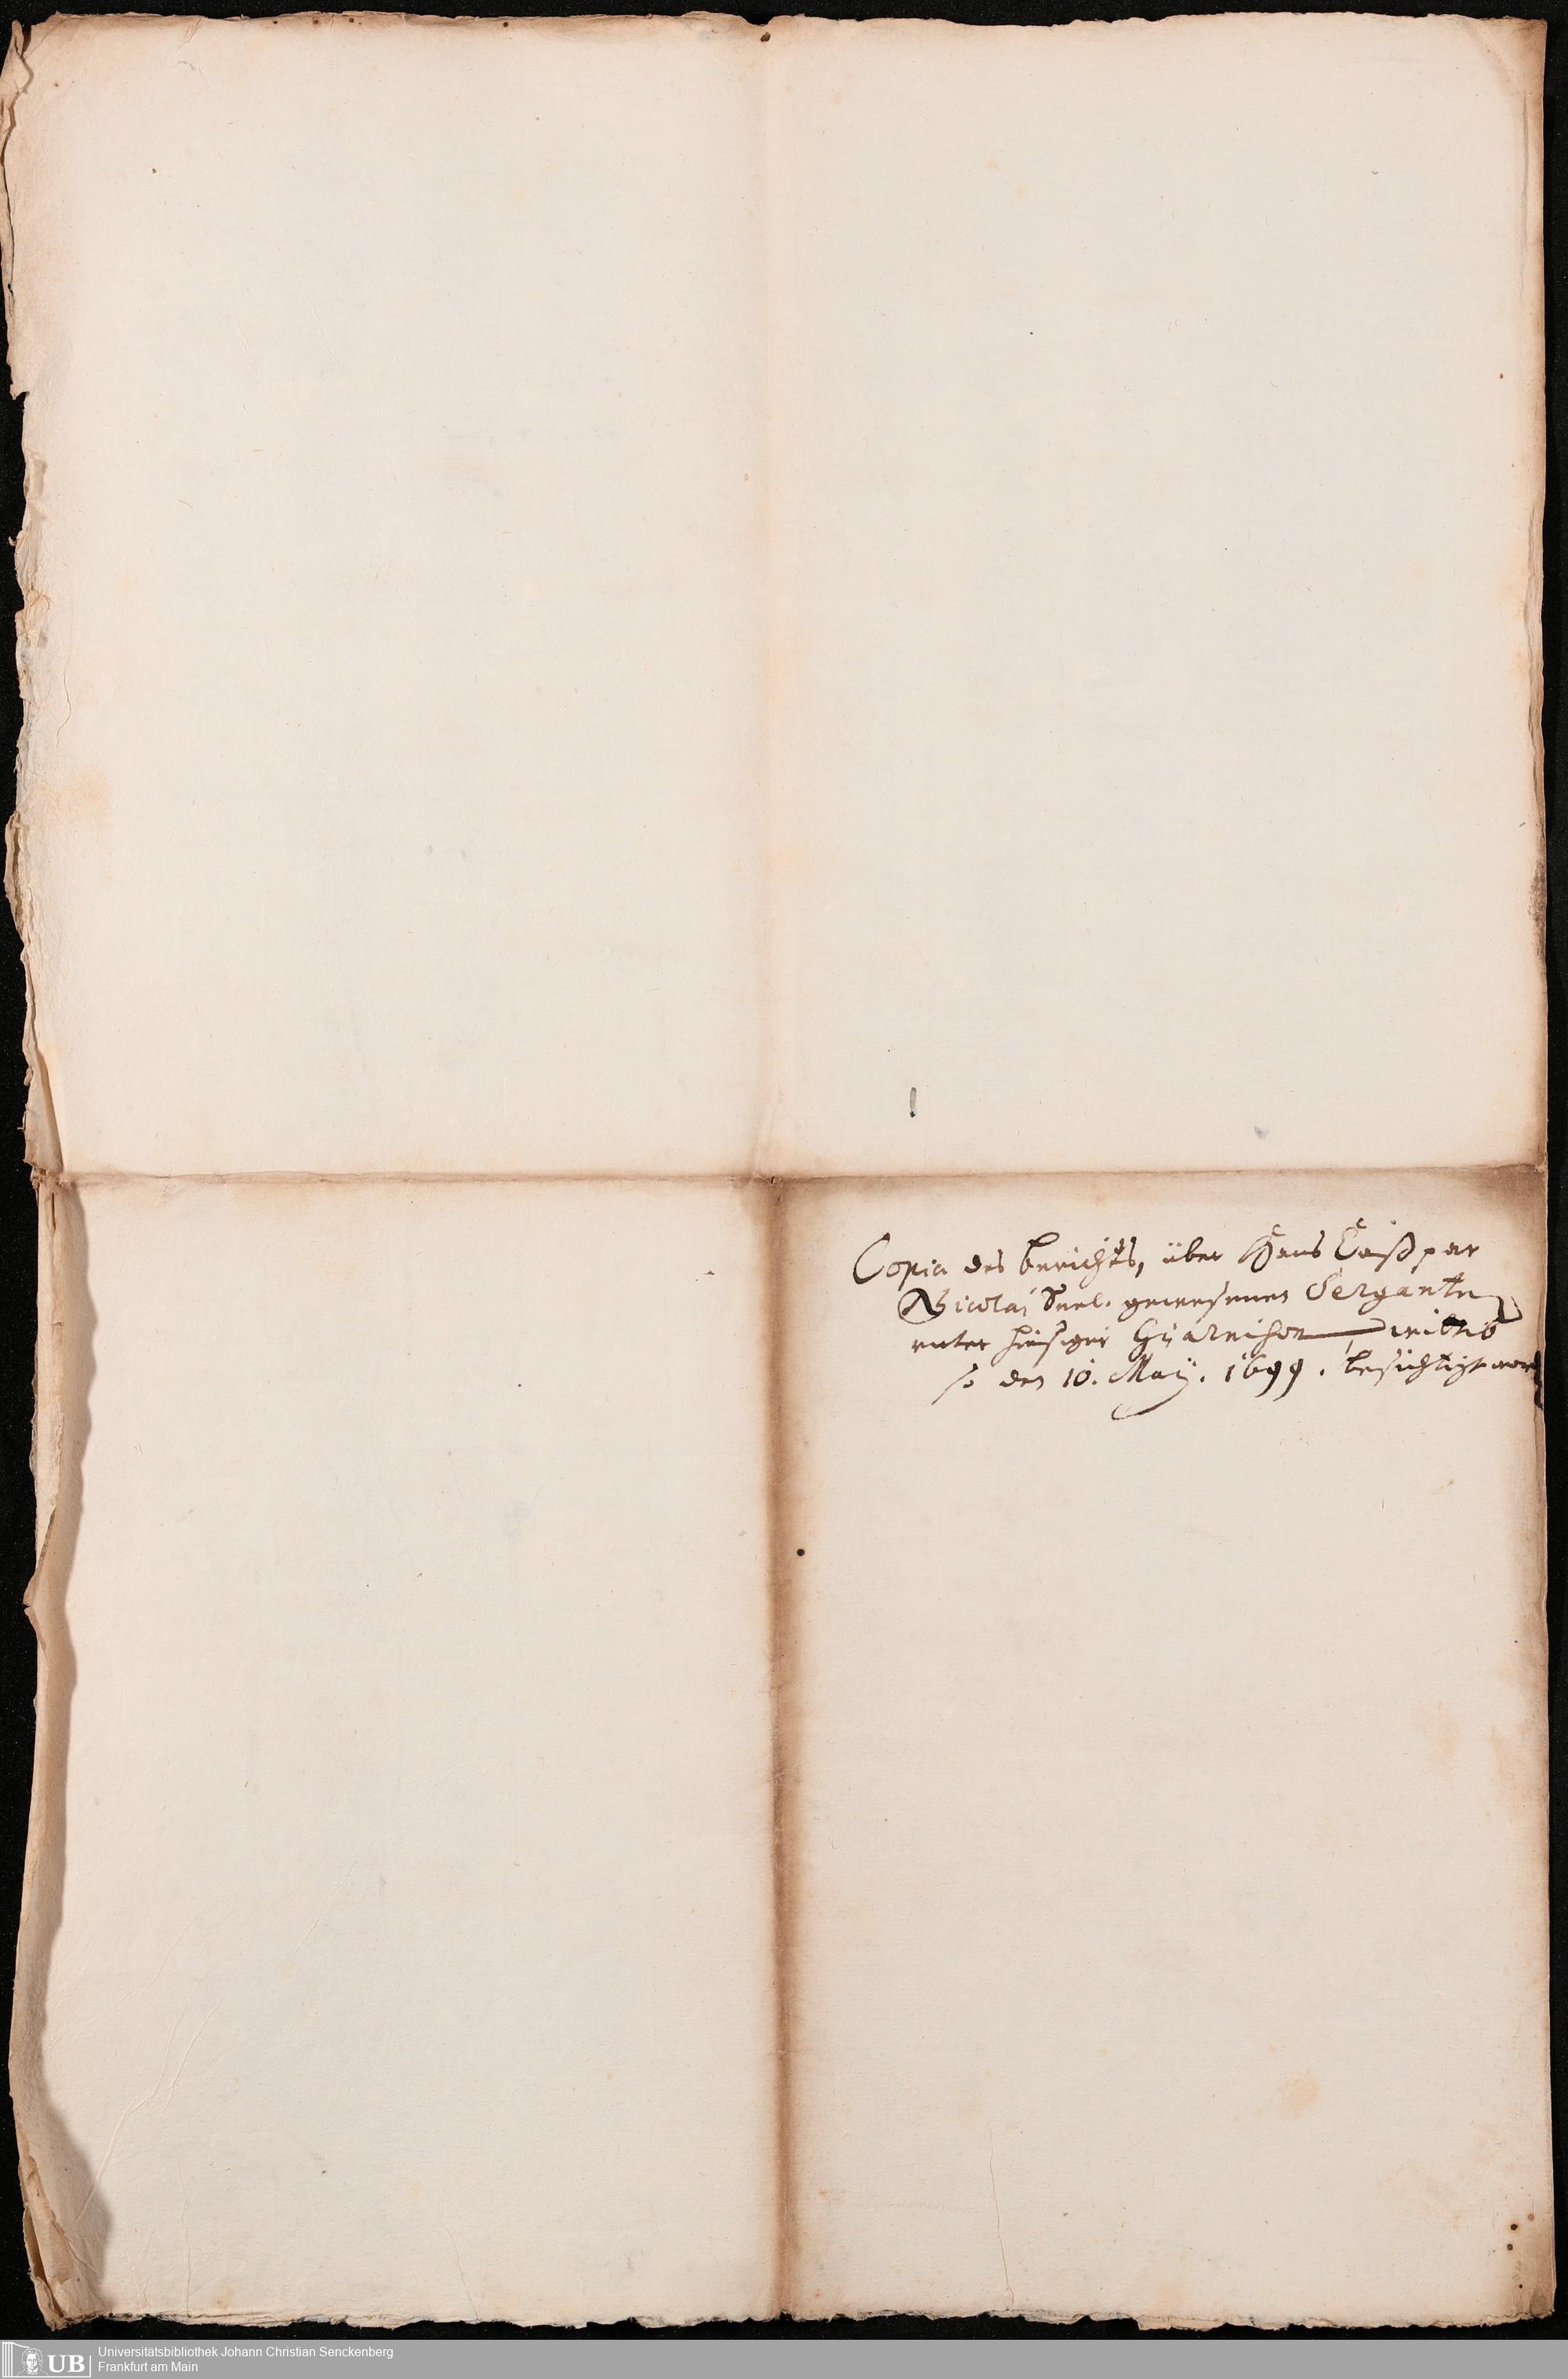 Copia des berichts, über Hans Caißpar
Nicolai Seel. gewesenen Sergante
unter hiesiger Guarnison
so den 10. May. 1699. besichtigt wor
UB Universitätsbibliothek Johann Christian Senckenberg
Frankfurt am Main